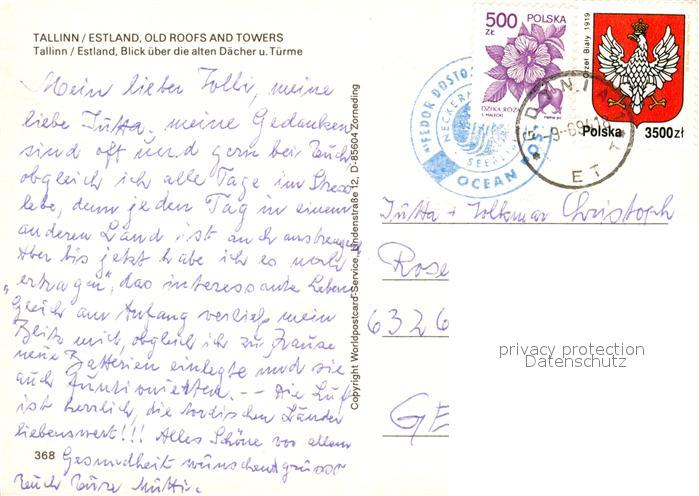 TALLINN / ESTLAND, OLD ROOFS AND TOWERS
Tallinn / Estland, Blick über die alten Dächer u. Türme
Mein lieber Folki, meine
liebe Jutta, meine Gedanken
sind oft und gern bei Euch
obgleich ich alle Tage im Stress
lebe, denn jeden Tag in einem
anderen Land ist auch anstrengend
Aber bis jetzt habe ich es wohl
"ertragen", das interessante Leben
Gleich am Anfang verließ mein
Blitz mich, obgleich ich zu Hause
neue Batterien einlegte und sie
auch funktionierten. -- Die Luft
ist herrlich, die nordischen Länder
liebenswert!!! Alles Schöne vor allem
Gesundheit wünschend grüsst
Euch Eure Mutti.
368
Copyright Worldpostcard-Service, Lindenstraße 12, D-85604 Zorneding
500 ZŁ POLSKA
DZIKA RÓŻA
S. MAŁECKI
Orzeł Biały 1919
Polska 3500zł
OCEAN POST
GDYNIA
-9.-8 94
Jutta + Volkmar Christoph
Rose
6326
GE
privacy protection
Datenschutz